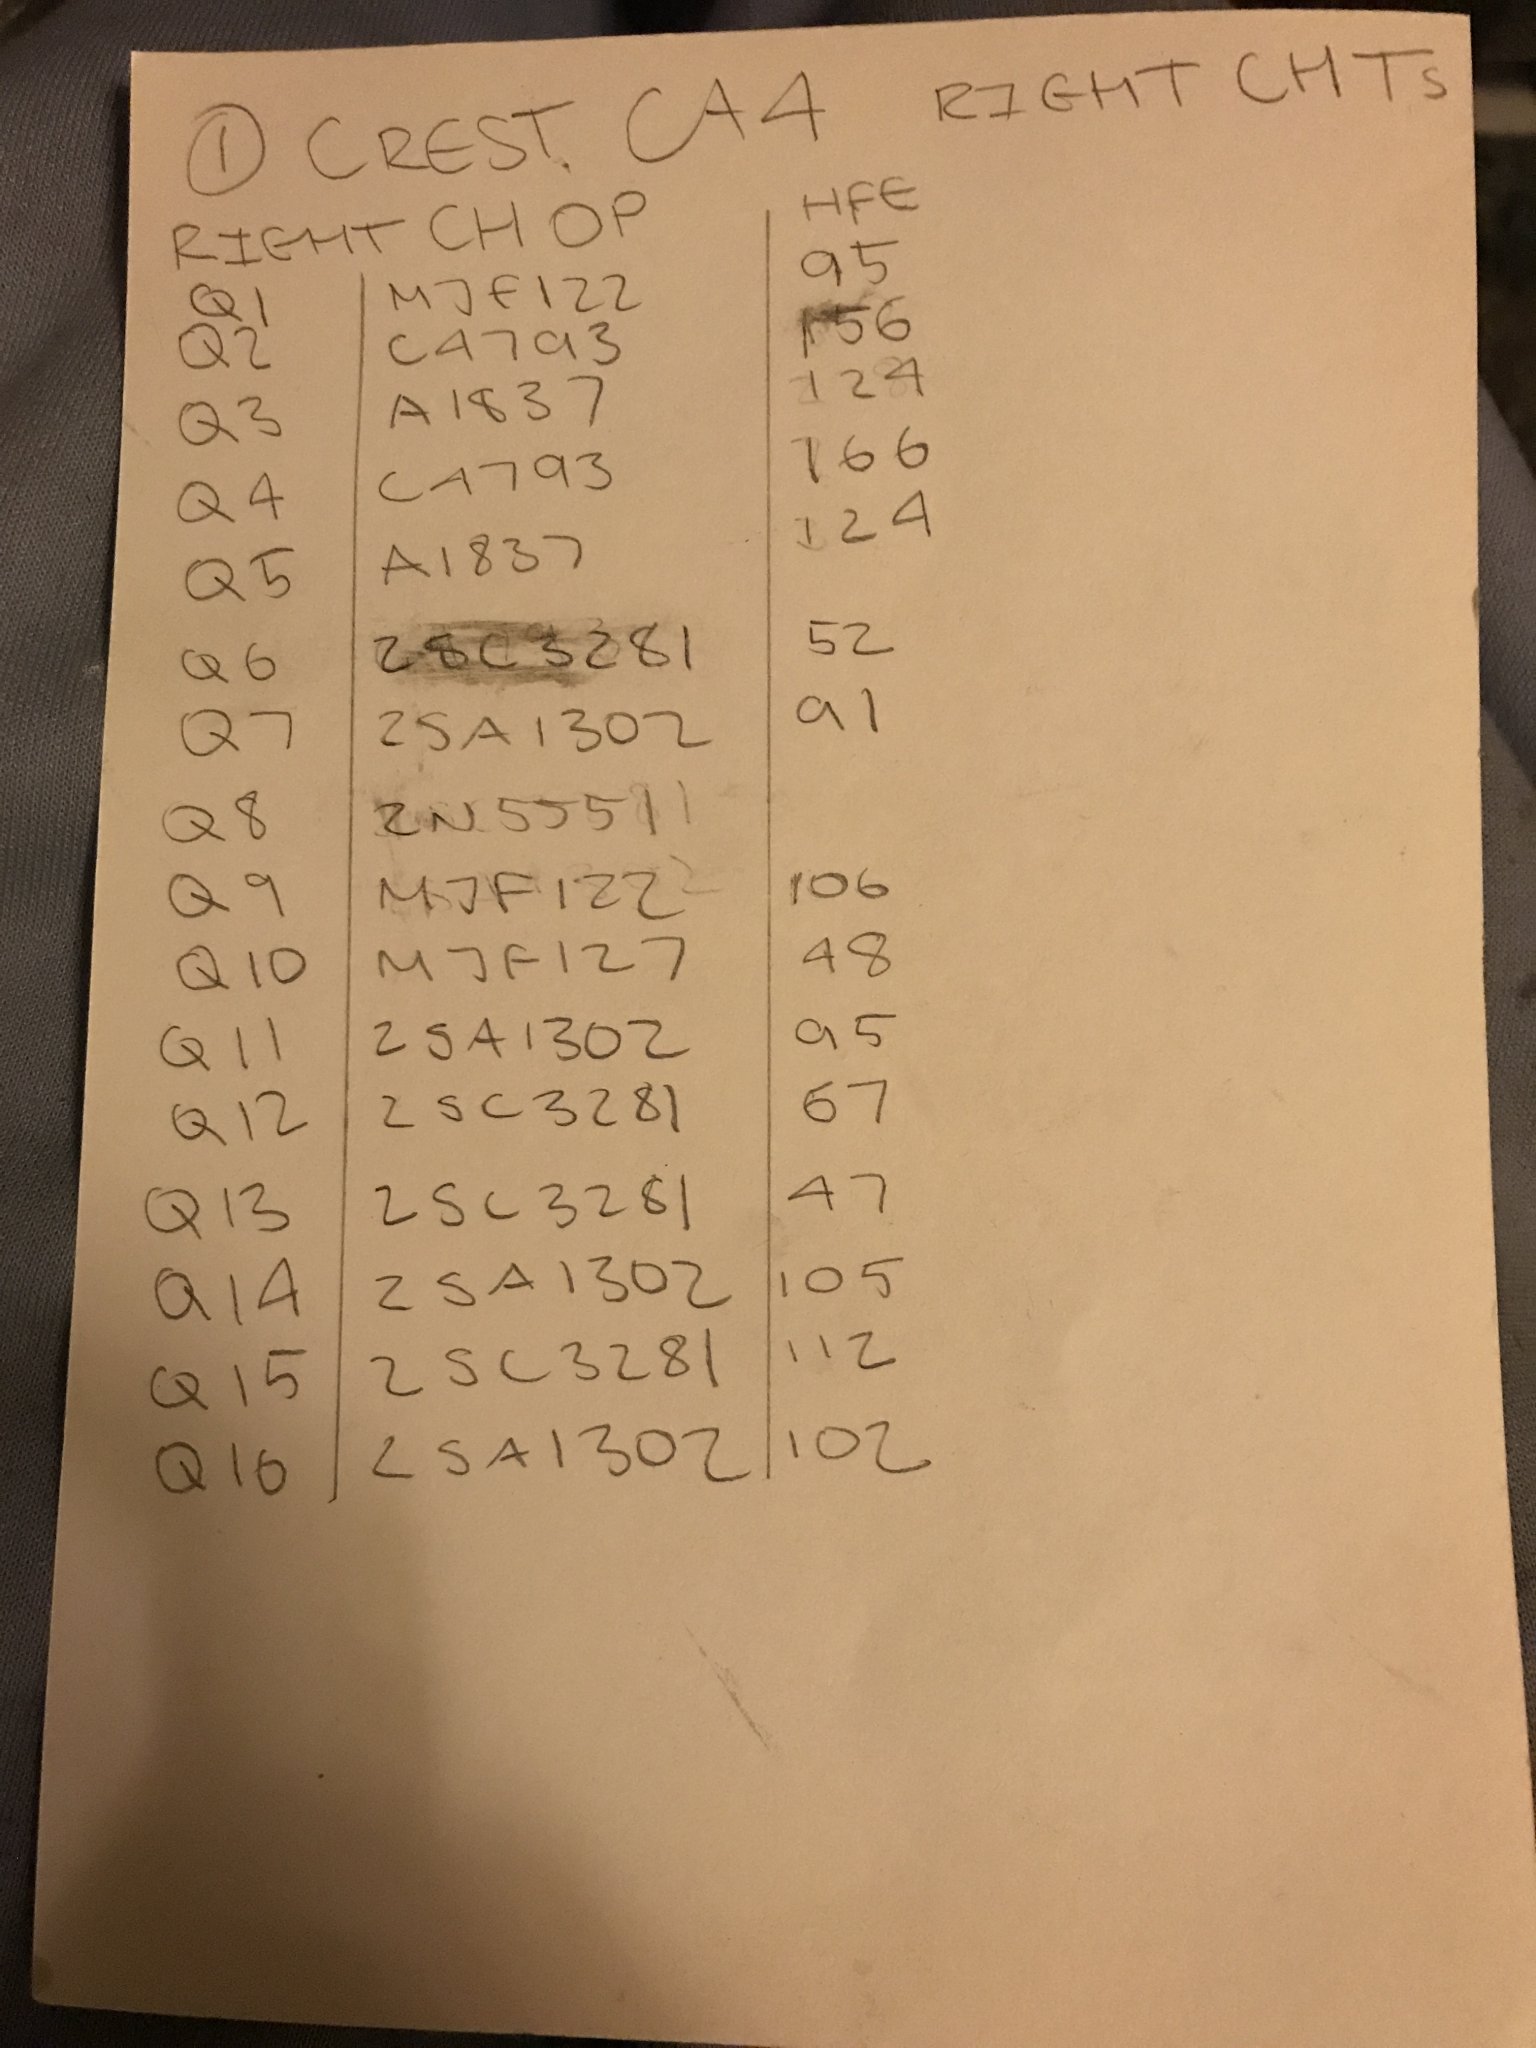 ① CREST. CA4 RIGHT CHTs
RIGHT CH OP HFE
Q1 MJF122 95
Q2 C4793 156
Q3 A1837 124
Q4 C4793 166
Q5 A1837 124
Q6 2SC3281 52
Q7 2SA1302 91
Q8 2N5551
Q9 MJF122 106
Q10 MJF127 48
Q11 2SA1302 95
Q12 2SC3281 67
Q13 2SC3281 47
Q14 2SA1302 105
Q15 2SC3281 112
Q16 2SA1302 102